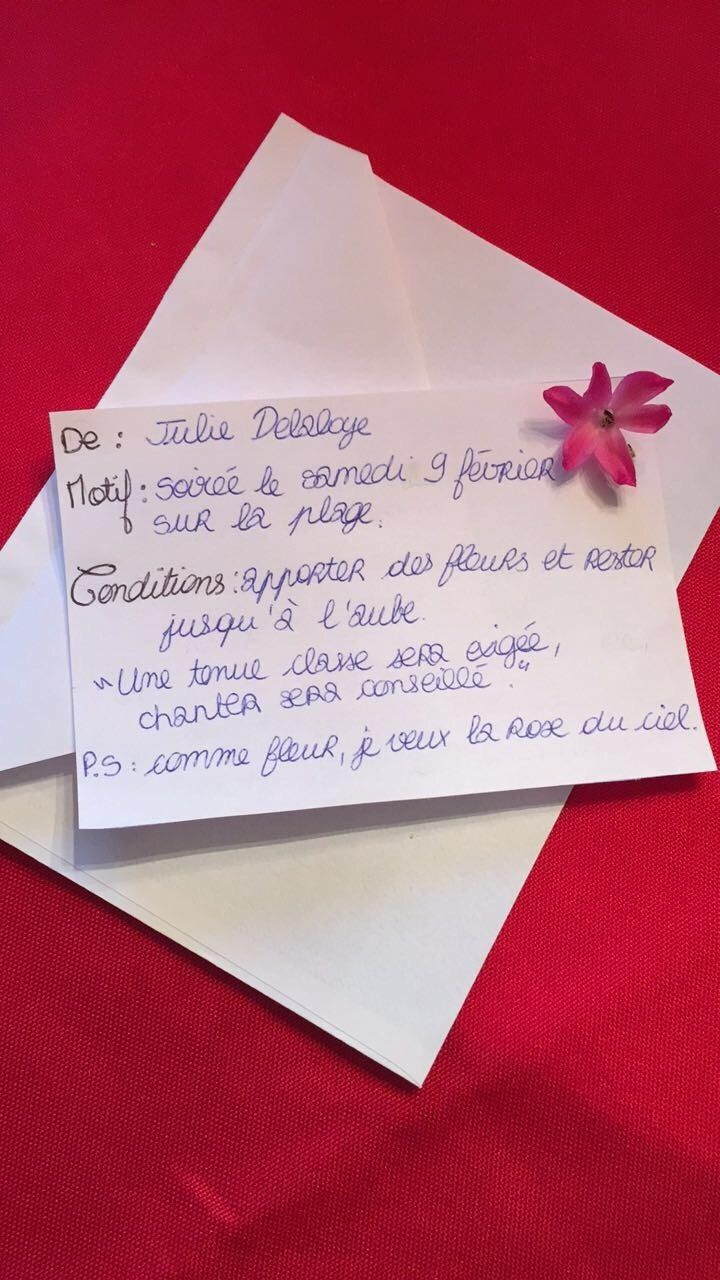 De : Julie Delaloye
Motif : soirée le samedi 9 février
sur la plage.
Conditions : apporter des fleurs et rester
jusqu'à l'aube.
"Une tenue classe sera exigée,
chanter sera conseillé."
P.S : comme fleur, je veux la rose du ciel.